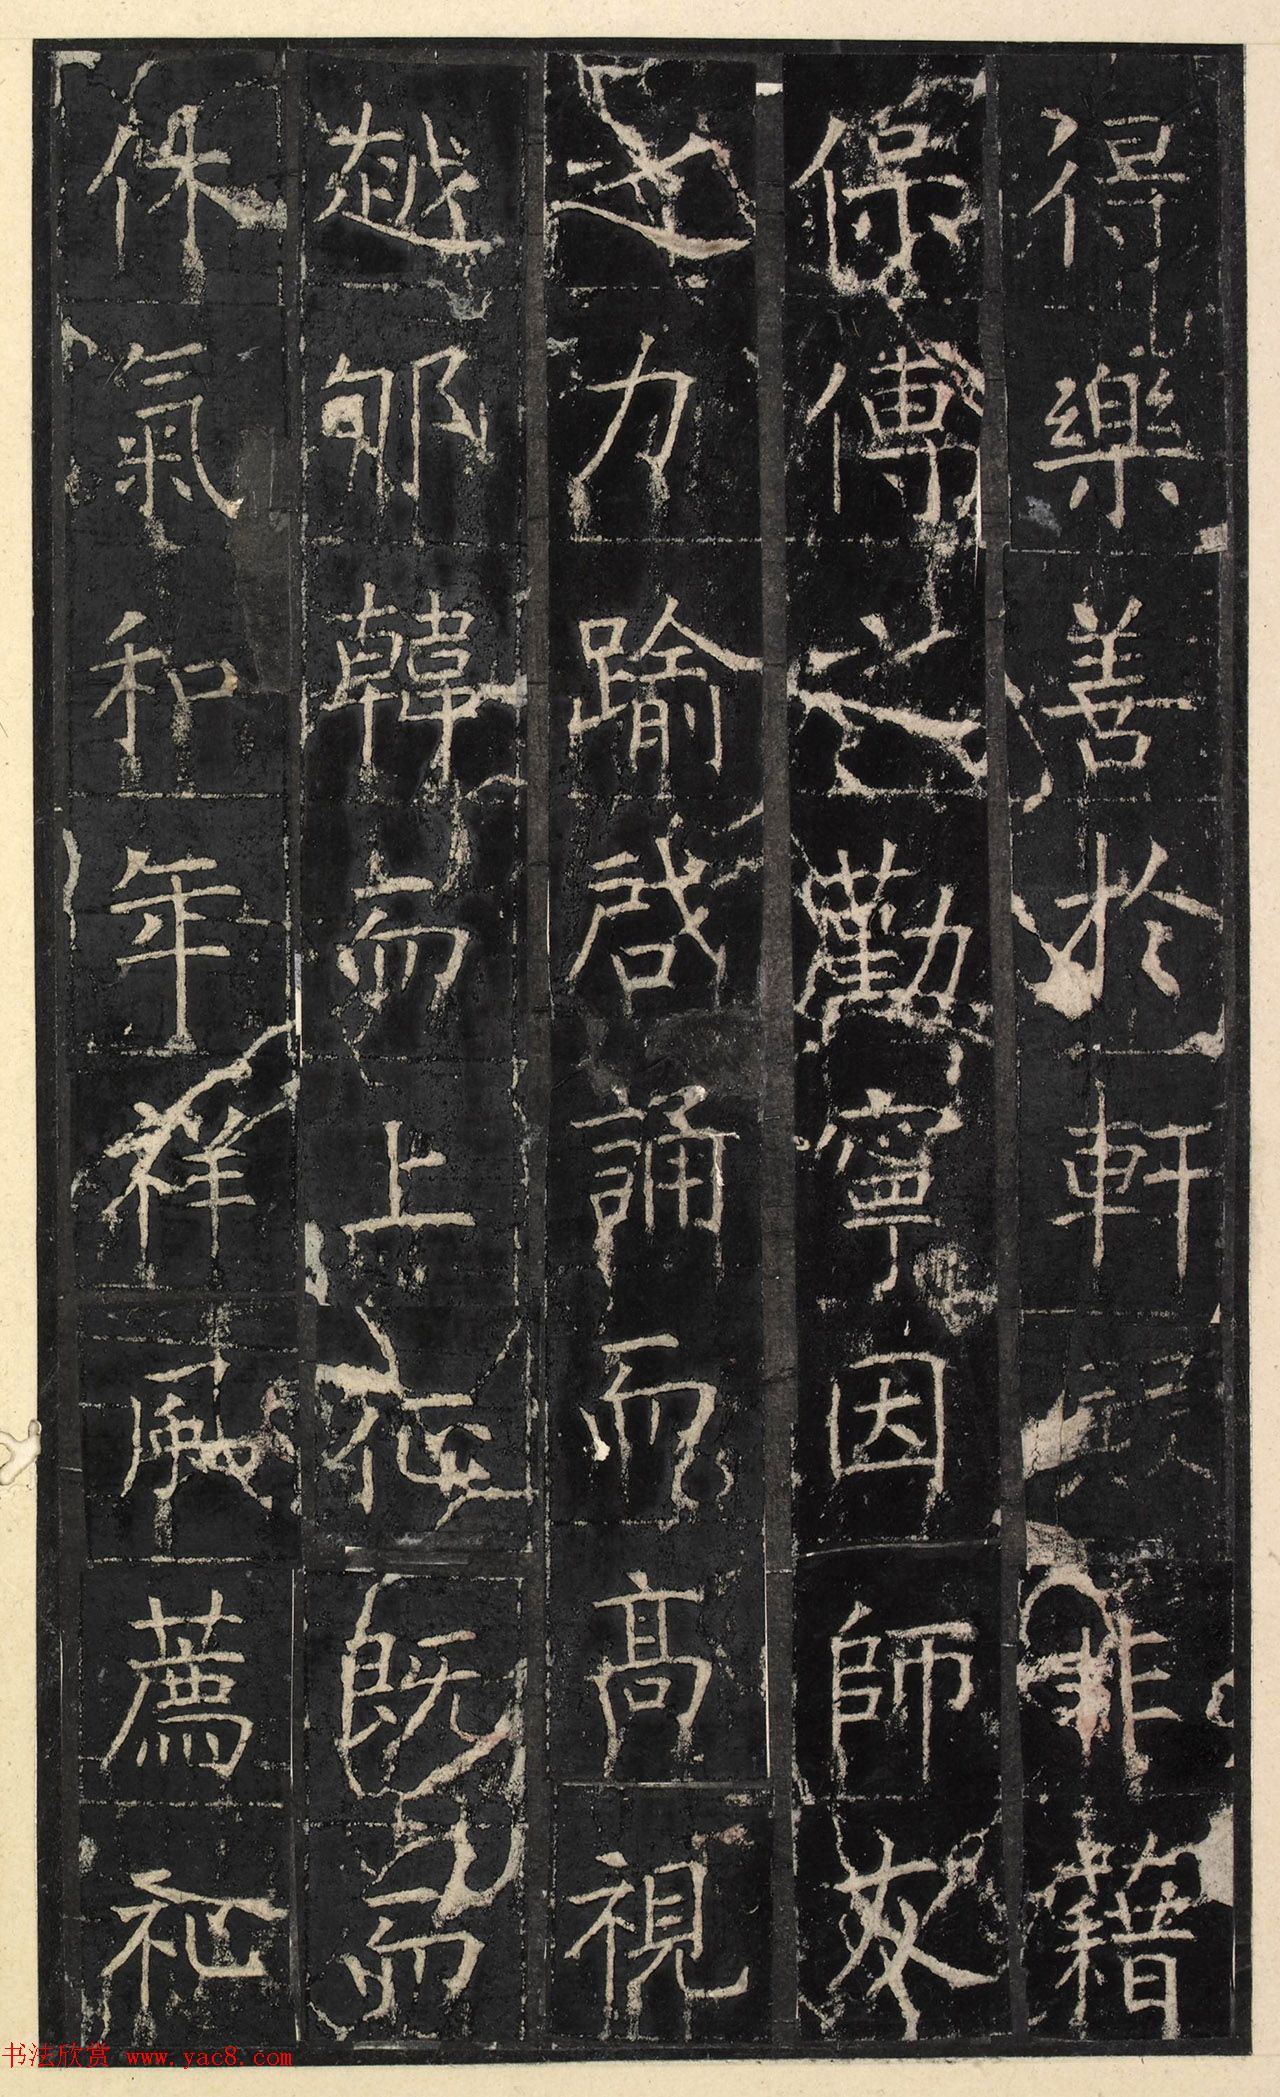 得樂善於軒非籍
保傅之勸寧因師友
之力踰啓誦而高視
越郇韓而上征既而
休氣和年祥風薦祉
书法欣赏 www.yac8.com